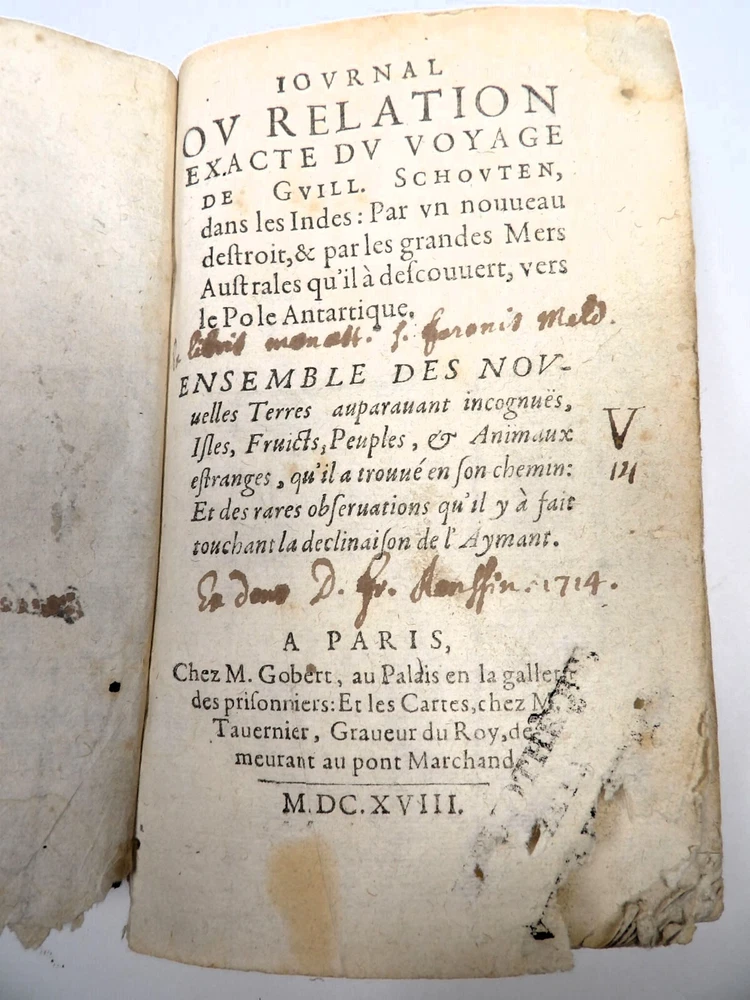 IOVRNAL
OV RELATION
EXACTE DV VOYAGE
DE GVILL. SCHOVTEN,
dans les Indes: Par vn nouueau
deſtroit, & par les grandes Mers
Auſtrales qu'il à deſcouuert, vers
le Pole Antartique.
libris monast. S. Faronis Meld.
ENSEMBLE DES NOV-
uelles Terres auparauant incognuës,
Iſles, Fruicts, Peuples, & Animaux
V
eſtranges, qu'il a trouué en ſon chemin:
14
Et des rares obſeruations qu'il y à fait
touchant la declinaiſon de l'Aymant.
Ex dono D. Fr. 1714.
A PARIS,
Chez M. Gobert, au Palais en la gallerie
des priſonniers: Et les Cartes, chez M.
Tauernier, Graueur du Roy, de-
meurant au pont Marchand.
M.DC.XVIII.